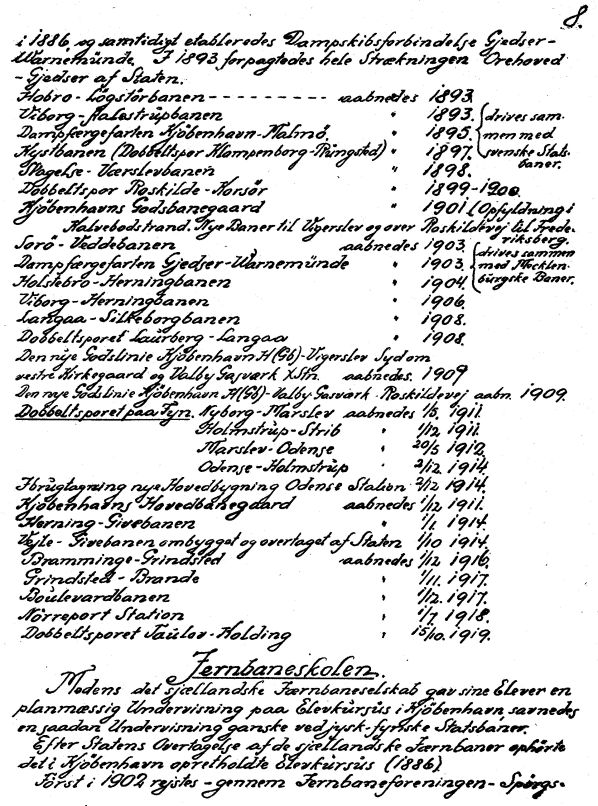 8.
i 1886, og samtidigt etableredes Dampskibsforbindelse Gjedser-
Warnemünde. I 1893 forpagtedes hele Strækningen Orehoved
- Gjedser af Staten.
Hobro-Lögstörbanen ---------- aabnedes 1893.
Viborg-Aalestrupbanen " 1893. {drives sam-
Dampfærgefarten Kjöbenhavn-Malmö, " 1895. men med
Kystbanen (Dobbeltspor Klampenborg-Rungsted) " 1897. svenske Stats-
Slagelse-Værslevbanen " 1898. baner.
Dobbeltspor Roskilde-Korsör " 1899-1900.
Kjöbenhavns Godsbanegaard " 1901 (Opfyldning i
Kalvebodstrand. Nye Baner til Vigerslev og over Roskildevej til Frede-
riksberg.
Sorö-Veddebanen aabnedes 1903. {drives sammen
Dampfærgefarten Gjedser-Warnemünde " 1903. med Mecklen-
Holstebro-Herningbanen " 1904. burgske Baner.
Viborg-Herningbanen " 1906
Langaa-Silkeborgbanen " 1908.
Dobbeltsporet Laurberg-Langaa " 1908.
Den nye Godslinie Kjöbenhavn H(Gb)-Vigerslev Sydom
vestre Kirkegaard og Valby Gasværk XStn. aabnedes. 1909
Den nye Godslinie Kjöbenhavn H(Gb)-Valby Gasværk-Roskildevej aabn. 1909.
Dobbeltsporet paa Fyn. Nyborg-Marslev aabnedes 1/5 1911.
Holmstrup-Strib 1/12 1911.
Marslev-Odense 20/5 1912.
Odense-Holmstrup 2/12 1914.
Ibrugtagning nye Hovedbygning Odense Station 2/12 1914.
Kjöbenhavns Hovedbanegaard aabnedes 1/12 1911.
Herning-Givebanen " 1/1 1914.
Vejle-Givebanen ombygget og overtaget af Staten 1/10 1914.
Bramminge-Grindsted aabnedes 1/12 1916.
Grindsted-Brande " 1/11. 1917.
Boulevardbanen " 1/12. 1917.
Nörreport Station " 1/7 1918.
Dobbeltsporet Taulov-Kolding " 15/10. 1919.
Jernbaneskolen.
Medens det sjællandske Jærnbaneselskab gav sine Elever en
planmæssig Undervisning paa Elevkursus i Kjöbenhavn, savnedes
en saadan Undervisning ganske ved jysk-fynske Statsbaner.
Efter Statens Overtagelse af de sjællandske Jærnbaner ophörte
det i Kjöbenhavn opretholdte Elevkursus (1886).
Först i 1902 rejstes - gennem Jernbaneforeningen - Spörgs-